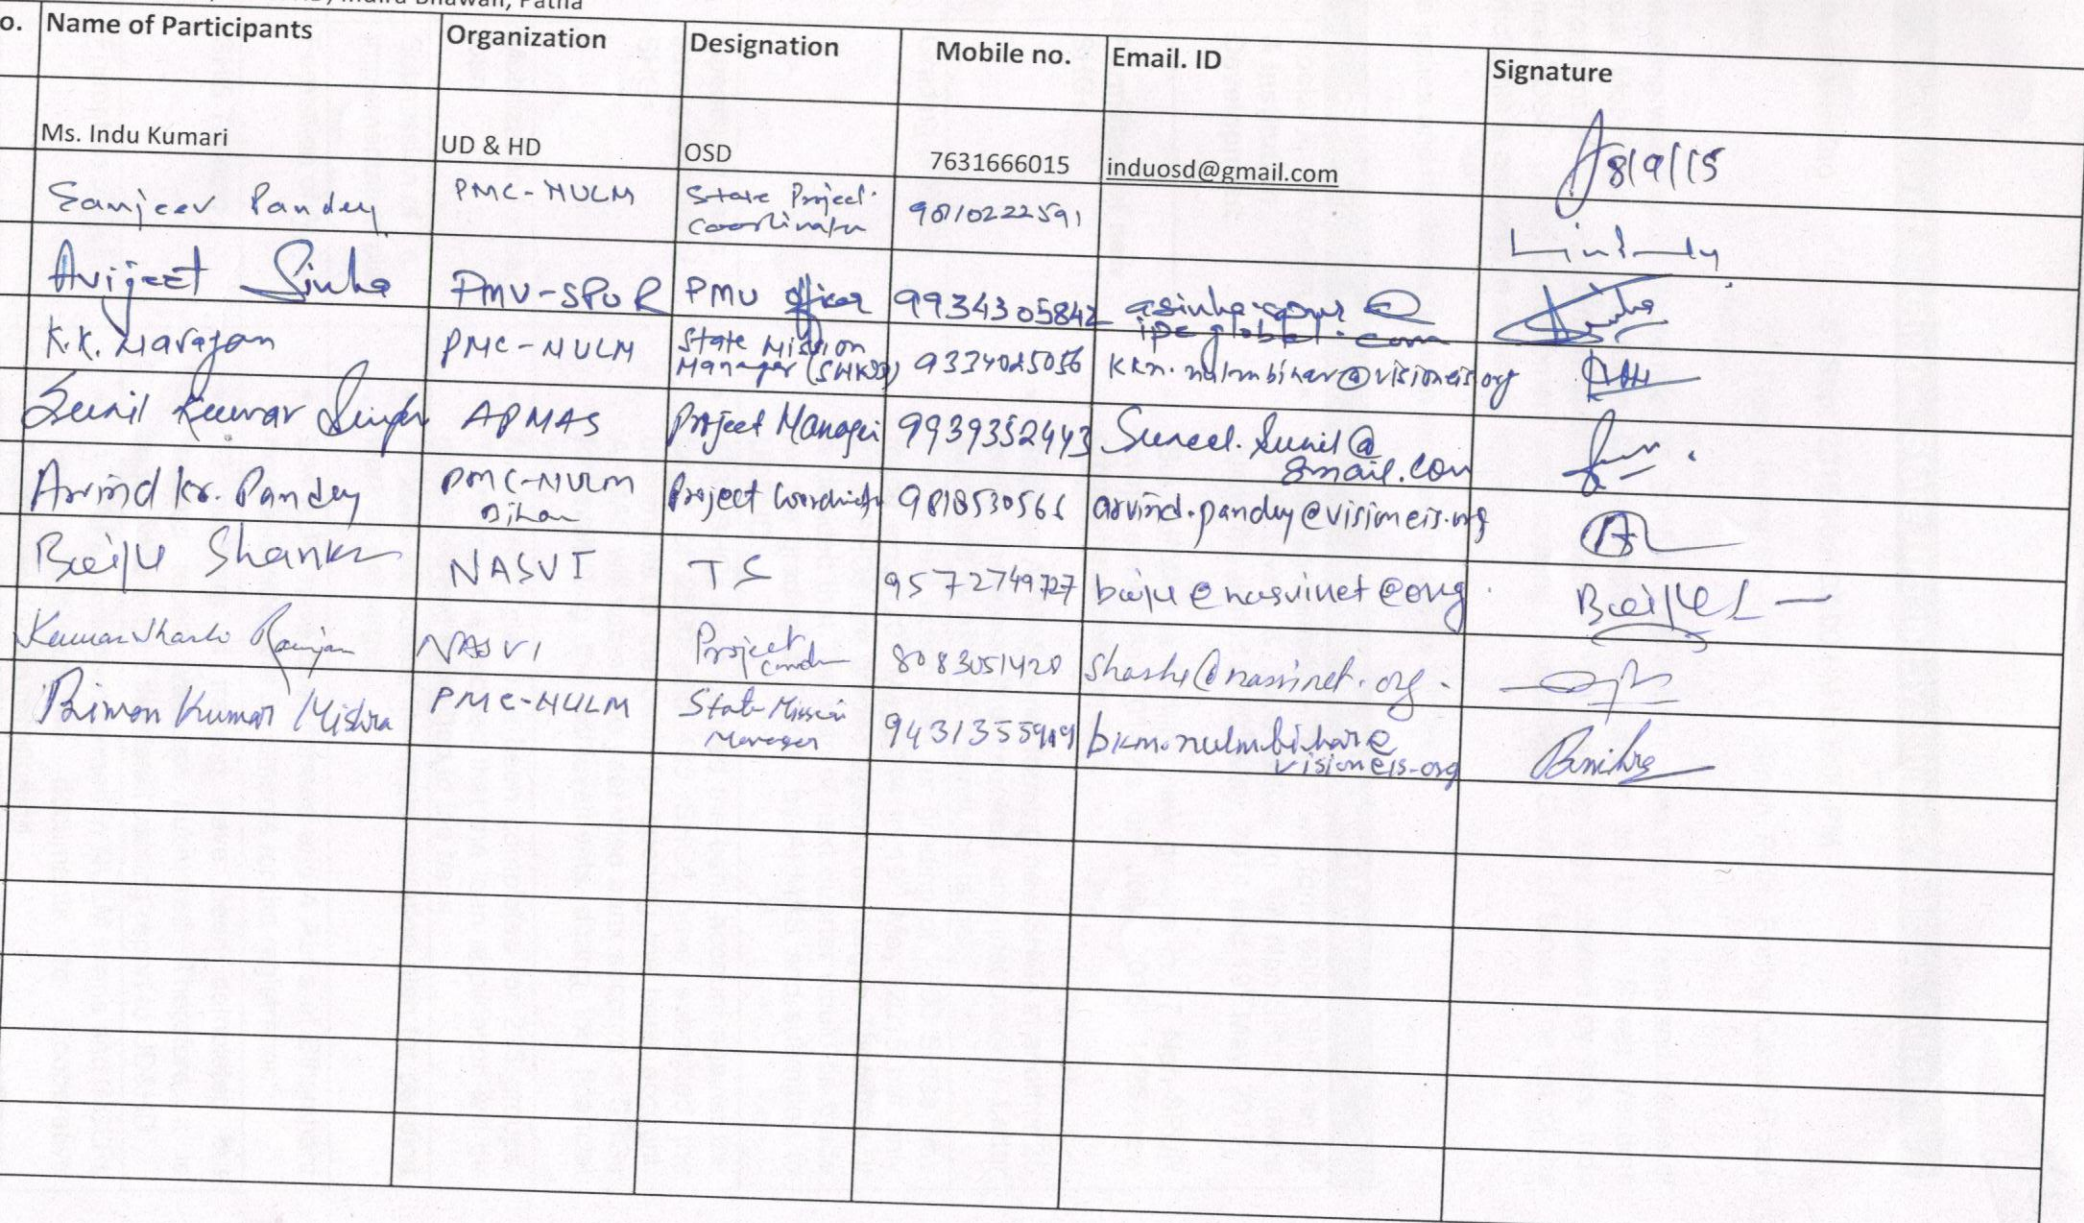 Indira Bhawan, Patna
o. Name of Participants Organization Designation Mobile no. Email. ID Signature
Ms. Indu Kumari UD & HD OSD 7631666015 induosd@gmail.com 8/9/15
Sanjeev Pandey PMC-NULM State Project Coordinator 9810222591
Avijeet Sinha PMU-SPUR PMU Officer 9934305842 asinha-spur@
ipeglobal.com
K.K. Narayan PMC-NULM State Mission
Manager 9334025056 kkn.nulmbihar@visioneis.org
Sunil Kumar Singh APMAS Project Manager 9939352443 Suneel.Sunil@
gmail.com
Arvind Kr. Pandey PMC-NULM Project Coordinator 9818530566 arvind.pandey@visioneis.org
Bihar
Baiju Shanker NASVI TS 9572749727 baiju@nasvinet@org
Kumar Shashi Ranjan NASVI Project 8083051420 shashi@nasvinet.org
Biman Kumar Mishra PMC-NULM State Mission
Manager bkm.nulmbihar@
visioneis.org